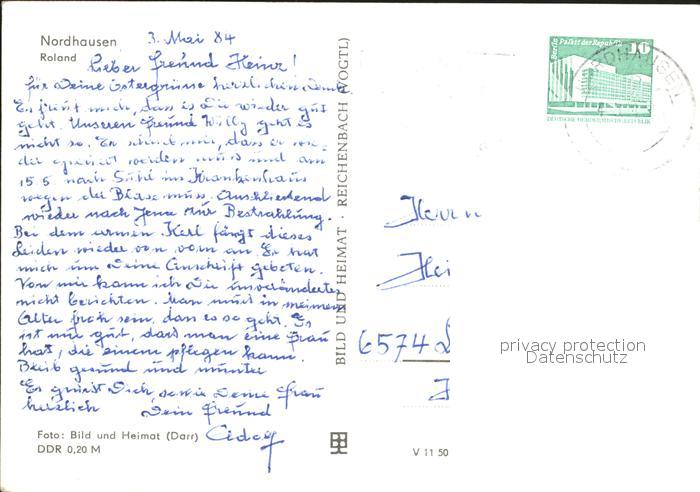 Nordhausen
Roland
3. Mai 84
Lieber Freund Heinz!
für Deine Ostergrüsse herzlichen Dank
Es freut mich, dass es Dir wieder gut
geht. Unserem Freund Willy geht es
nicht so. Er schrieb mir, dass er wie-
der operiert werden muss und am
15.5. nach Suhl ins Krankenhaus
wegen der Blase muss. Anschliessend
wieder nach Jena zur Bestrahlung.
Bei dem armen Kerl fängt dieses
Leiden wieder von vorn an. Er hat
mich um Deine Anschrift gebeten.
Von mir kann ich Dir unverändertes
nicht berichten. Man muss in meinem
Alter froh sein, dass es so geht. Es
ist nur gut, dass man eine Frau
hat, die einem pflegen kann.
Bleib gesund und munter
Es grüsst Dich, sowie Deine Frau
herzlich Dein Freund
Foto: Bild und Heimat (Darr)
DDR 0,20 M
BILD UND HEIMAT · REICHENBACH (VOGTL)
V 11 50
Berlin, Palast der Republik
10
DEUTSCHE DEMOKRATISCHE REPUBLIK
NORDHAUSEN
Herrn
Hei
6574
privacy protection
Datenschutz